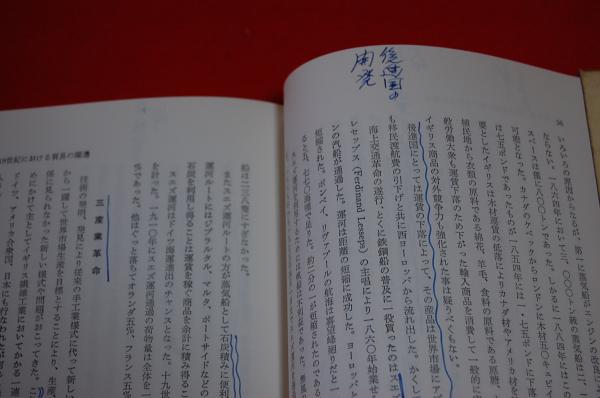 後進国の
開発
36
いろいろの要因からなるが、第一に蒸気船のエンジンの改良に
ならない。一八六四年において三、〇〇〇トン級の蒸気船は一
スペースは僅に八〇〇トンであった。しかるに一八八四年にはこの
可能となった。カナダのケベックからロンドンに木材五〇キュビイ
は七五ポンドであったものが一八五四年には一・七五ポンドに
要としたイギリスは木材運賃の低落によりカナダ材やアメリカ材な
植民地から衣類の原料である綿花、羊毛、食料の原料である
般労働大衆も運賃下落のため下がった輸入商品を消費して一般的に
イギリス商品の対外競争力も強化された事は疑うべくもない。
後進国にとっては運賃の下落によって、その産品は世界市場にア
も移民渡航費の引下げと共に西ヨーロッパから流れ出した。かくし
海上交通革命の遂行・とくに鉄鋼船の普及に一役買ったのはスエ
レセップス(Ferdinand Lesseps)の主唱により一八六〇年始業せ
ンの汽船が通過した。運河は距離の短縮に成功した。ヨーロッパと
短縮された。ボンベイ、リヴアプールの航海は喜望峰廻りだと一
ると共、七七〇浬で足りた。約二分の一が短縮されたのである
19世紀における貿易の躍進
船は二三八隻にすぎなかった。
またスエズ運河ルートの方が蒸気船として石炭積みに便利
運河ルートにはジブラルタル、マルタ、ポートサイドなどの
石炭を利用し得ることは運賃を稼ぐ商品を余計に積み得るこ
スエズ運河はドイツ海運進出のチャンスとなった。十九世
を計った。一九一〇年にはスエズ運河通過の荷物量は全体を一
%であった。他はぐっと落ちてオランダ五%、フランス五%
三 産業革命
技術の発明、発見により従来の手工業様式に代って新しい
から一躍して世界市場生産を目標とすることにより、生産、
係に見られなかった新しい様式や問題がおこってきた。こ
めにかけて主としてイギリス繊維工業においてかかる一連
ドイツ、アメリカ合衆国、日本にも行なわれたが